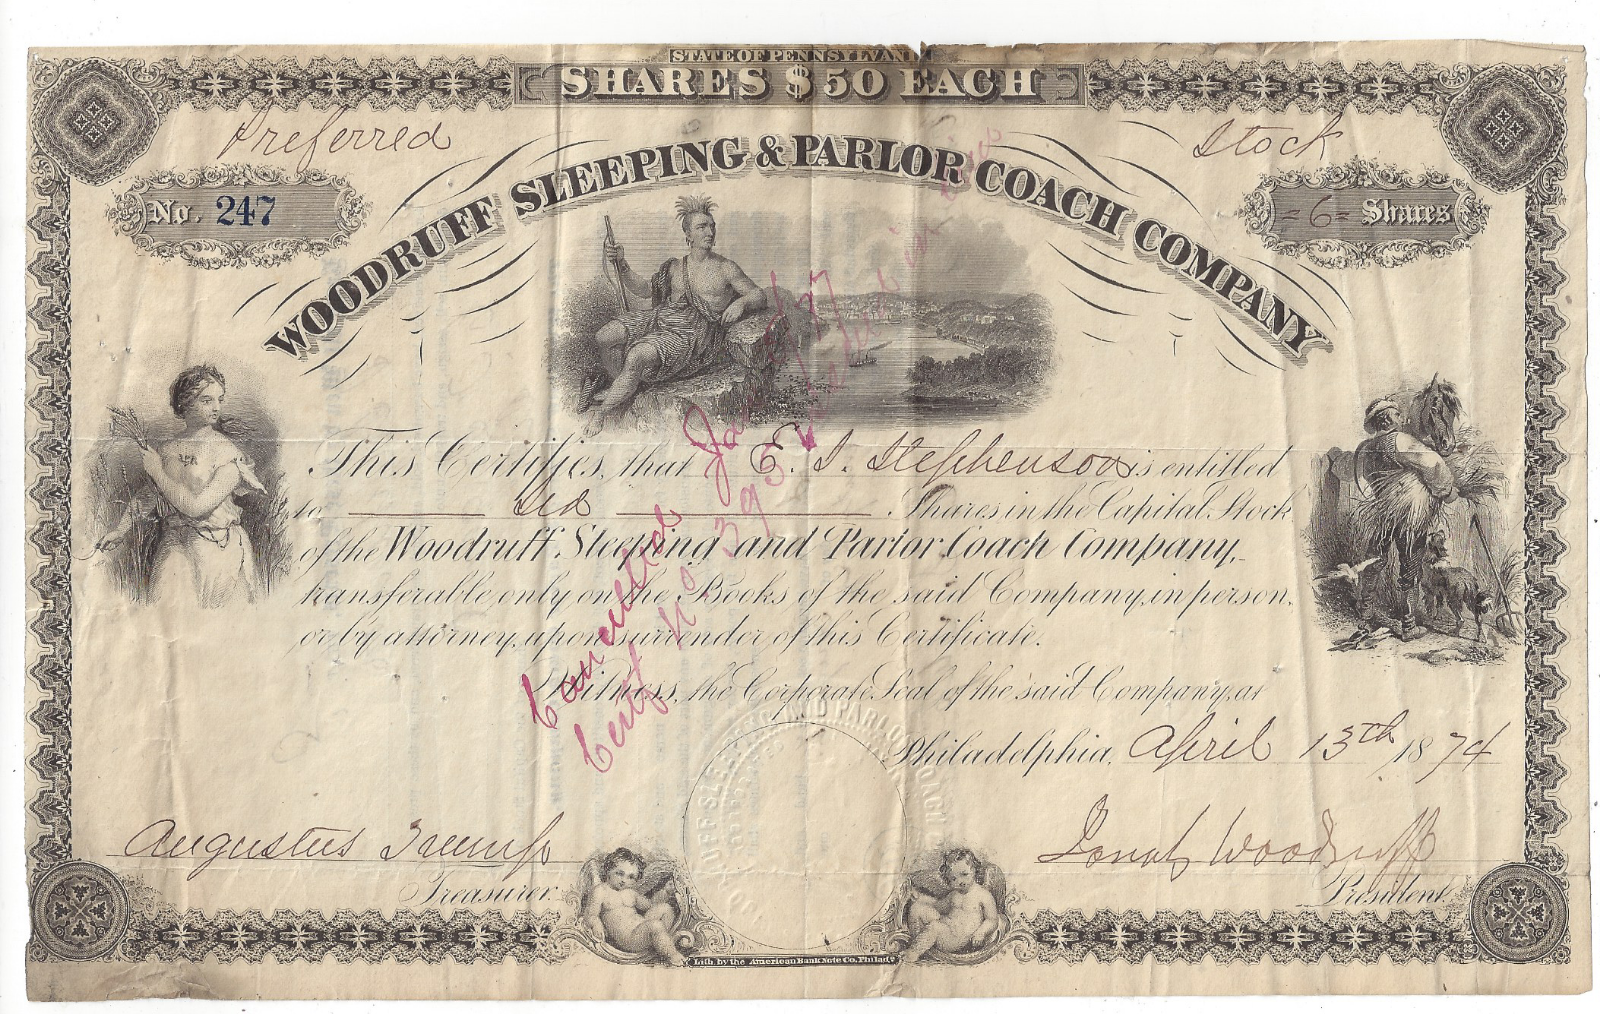 STATE OF PENNSYLVANIA
SHARES $50 EACH
Preferred Stock
No. 247
WOODRUFF SLEEPING & PARLOR COACH COMPANY
=6= Shares
This Certifies, that E. S. Stephenson is entitled
to Six Shares in the Capital Stock
of the Woodruff Sleeping and Parlor Coach Company,
transferable only on the Books of the said Company, in person,
or by attorney, upon surrender of this Certificate.
Witness, the Corporate Seal of the said Company, at
Philadelphia, April 13th 1874
Cancelled Jan
Certf No. 395
Augustus Trump
Treasurer.
Jonah Woodruff
President.
Lith. by the American Bank Note Co. Philada.